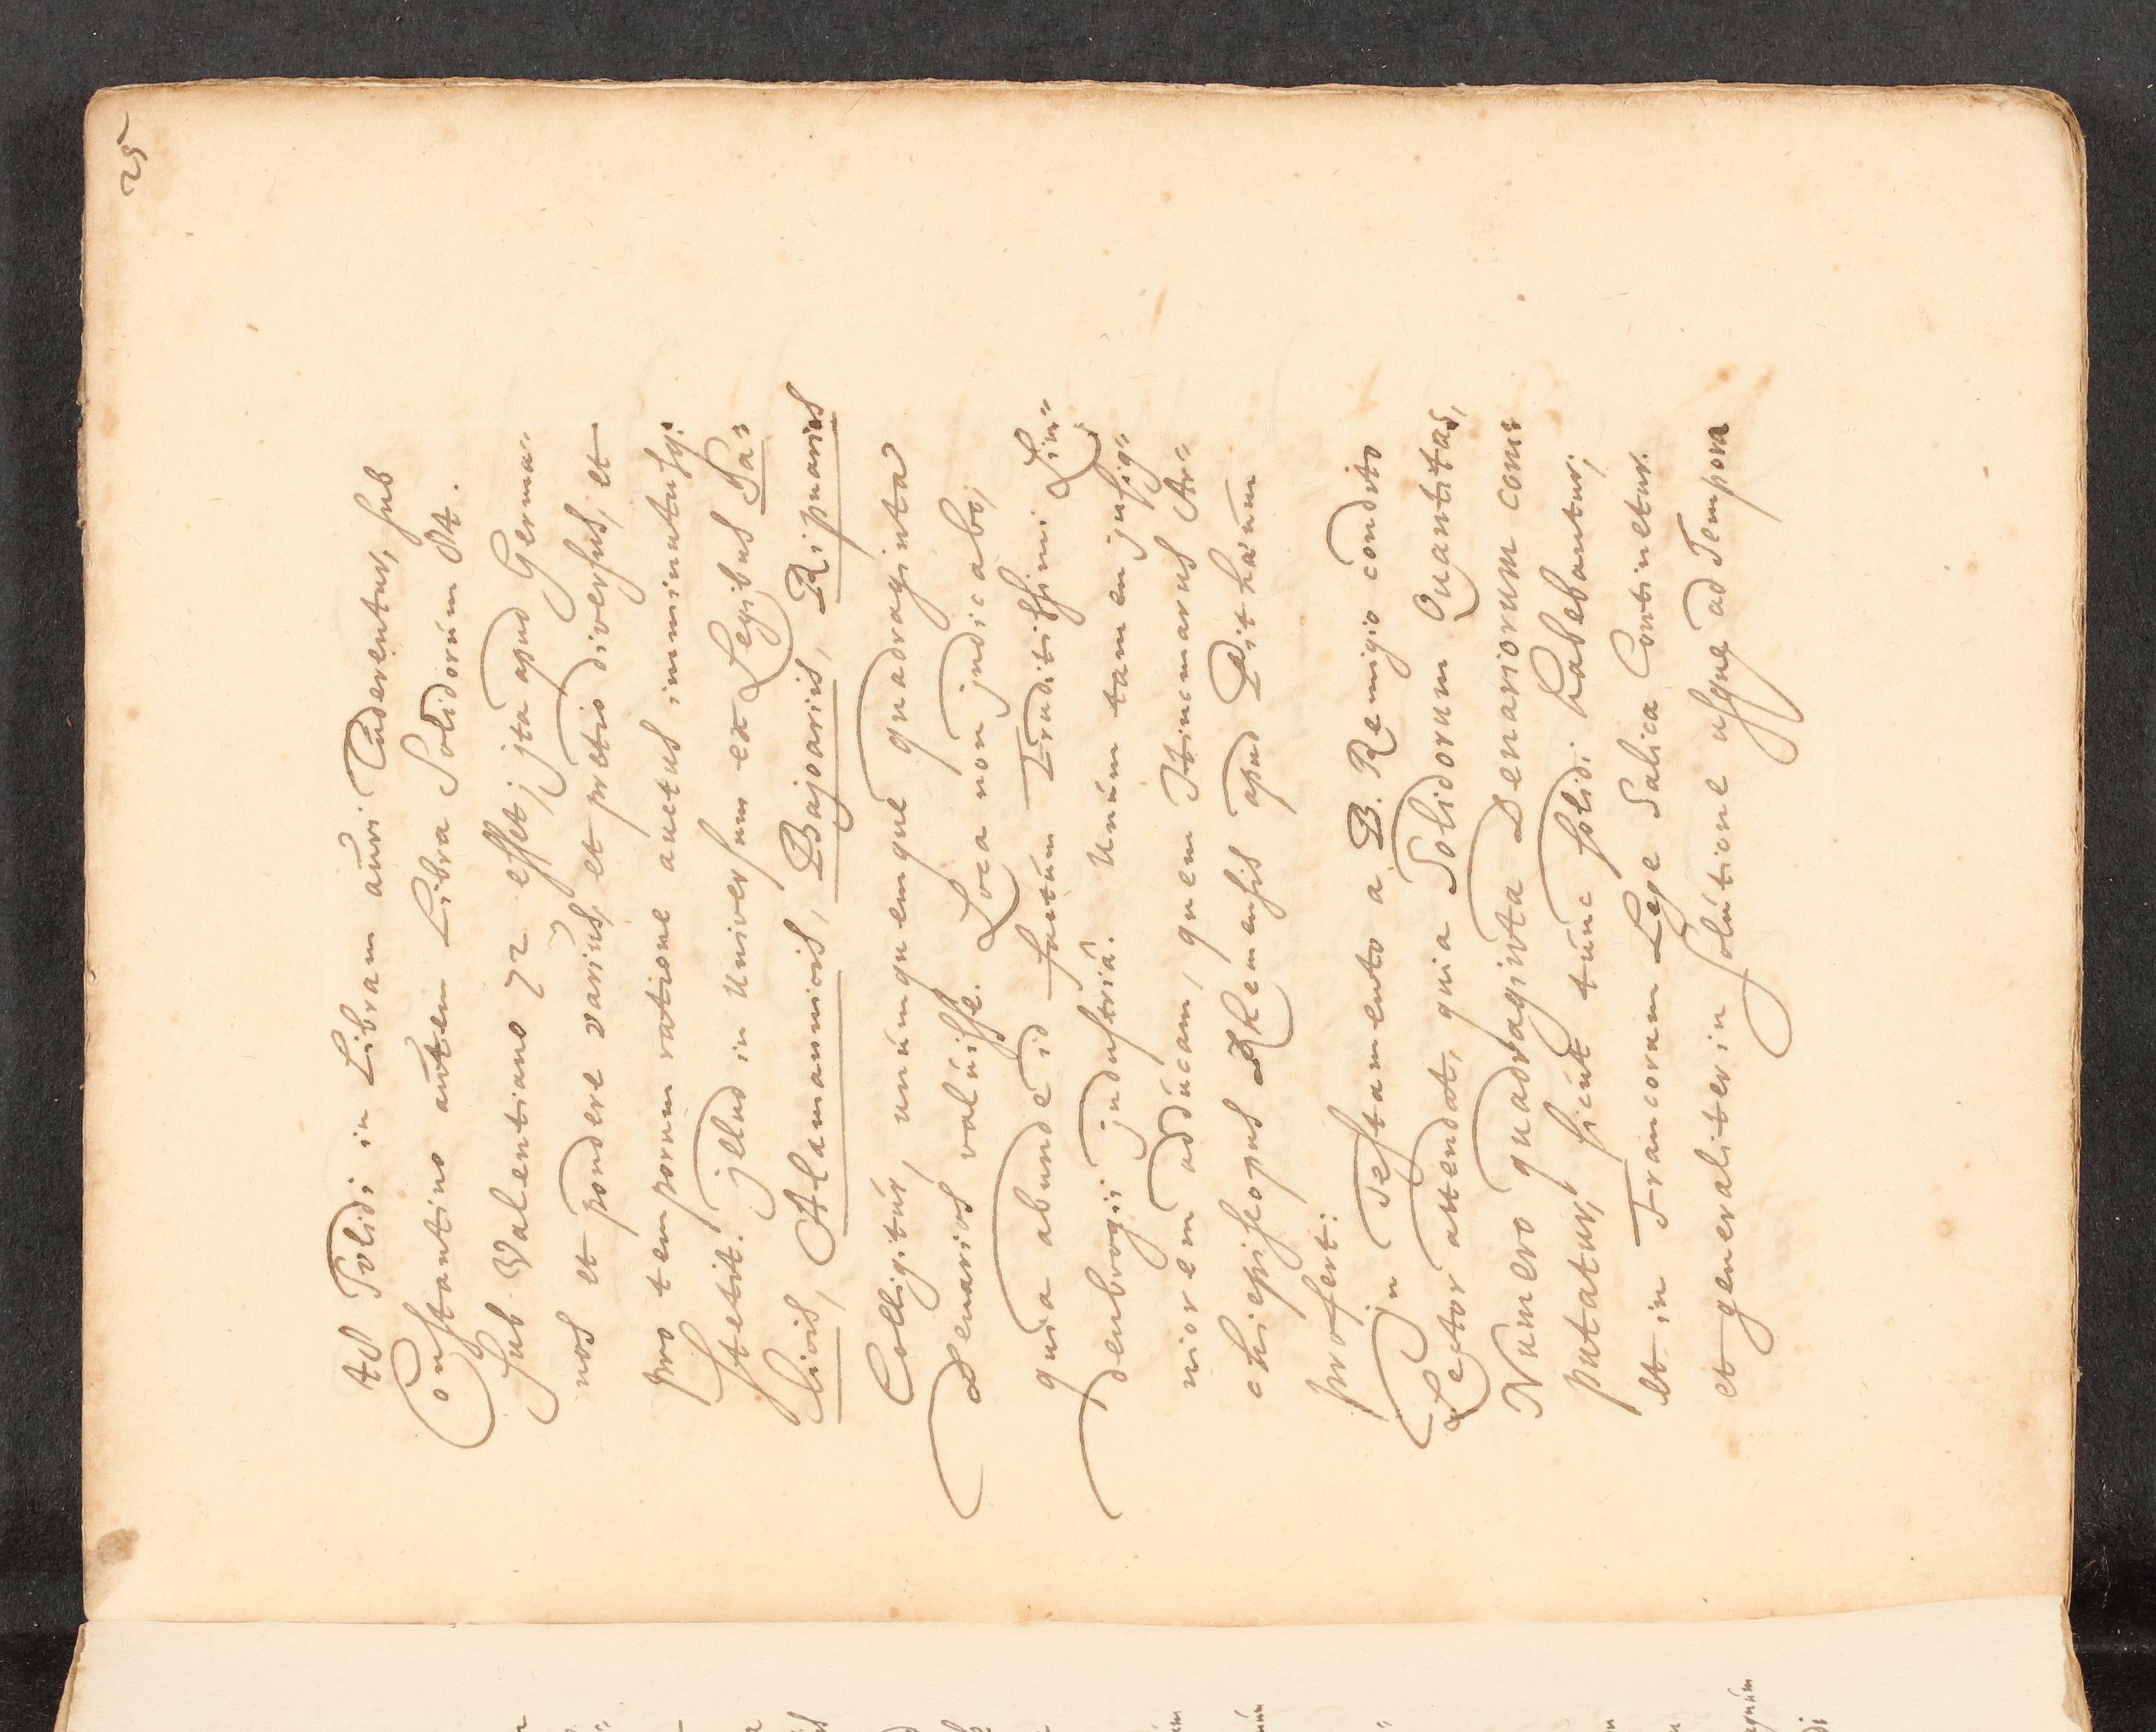 25
48 Solidi in Libram auri Cuderentur, sub
Constantino autem Libra Solidorum 84.
sub Valentiano 72 esset; jta apud Germa-
nos et pondere varius, et pretio diversus, et
pro temporum ratione auctus imminutusq;
stetit. jllud in Universum ex Legibus Sa-
licis, Alamannicis, Bajoariis, Ripuariis
Colligitur, unumquemque quadraginta
Denarios valuisse. Loca non judicabo,
quia abunde id factum Eruditissimi Lin-
denbrogii industriâ. Unum tamen insig-
niorem adducam, quem Hincmarus Ar-
chiepiscopus Rhemensis apud Pithaeum
profert:
jn Testamento a B. Remigio condito
Lector attendat, quia Solidorum Quantitas,
Numero quadraginta Denariorum com-
putatur, sicut tunc solidi habebantur;
et in Francorum Lege Salica Continetur.
et generaliter in solutione usque ad Tempora